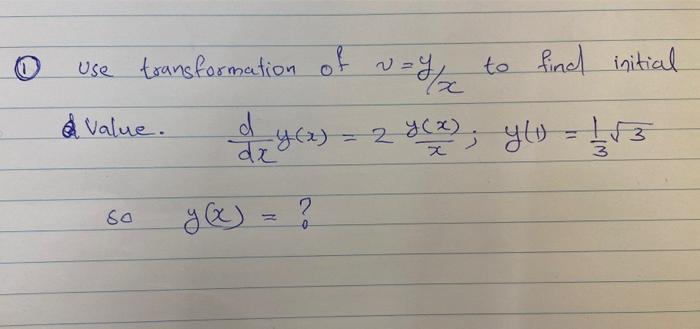 ① Use transformation of v = y/x to find initial
Value. d/dx y(x) = 2 y(x)/x ; y(1) = 1/3 √3
so y(x) = ?